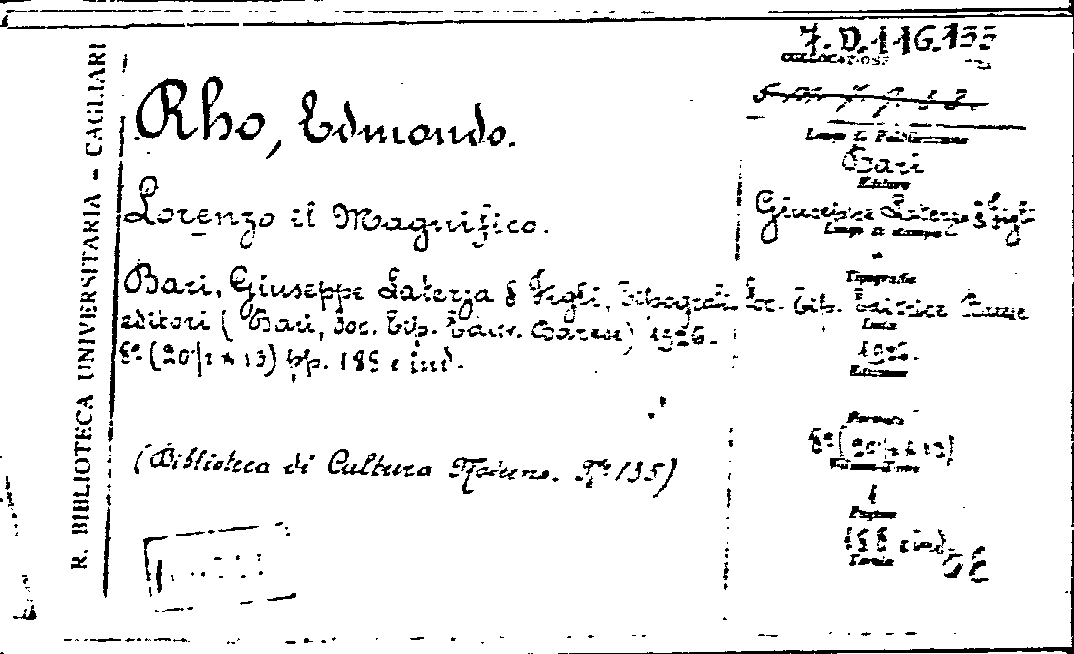 R. BIBLIOTECA UNIVERSITARIA - CAGLIARI
Rho, Edmondo.
Lorenzo il Magnifico.
Bari, Giuseppe Laterza & Figli, Soc. Tip.
editori (Bari, Soc. Tip. Barese) 1926.
8° (20/2 x 13) pp. 188 e ind.
(Biblioteca di Cultura Moderna. N° 135)
7. D. 116. 135
COLLOCAZIONE
Luogo di Pubblicazione
Bari
Editore
Giuseppe Laterza & Figli
Luogo di stampa
"
Tipografia
Data
1926.
Edizione
Formato
8° (20/2 x 13)
1
Pagine
188 e ind.
Tavole